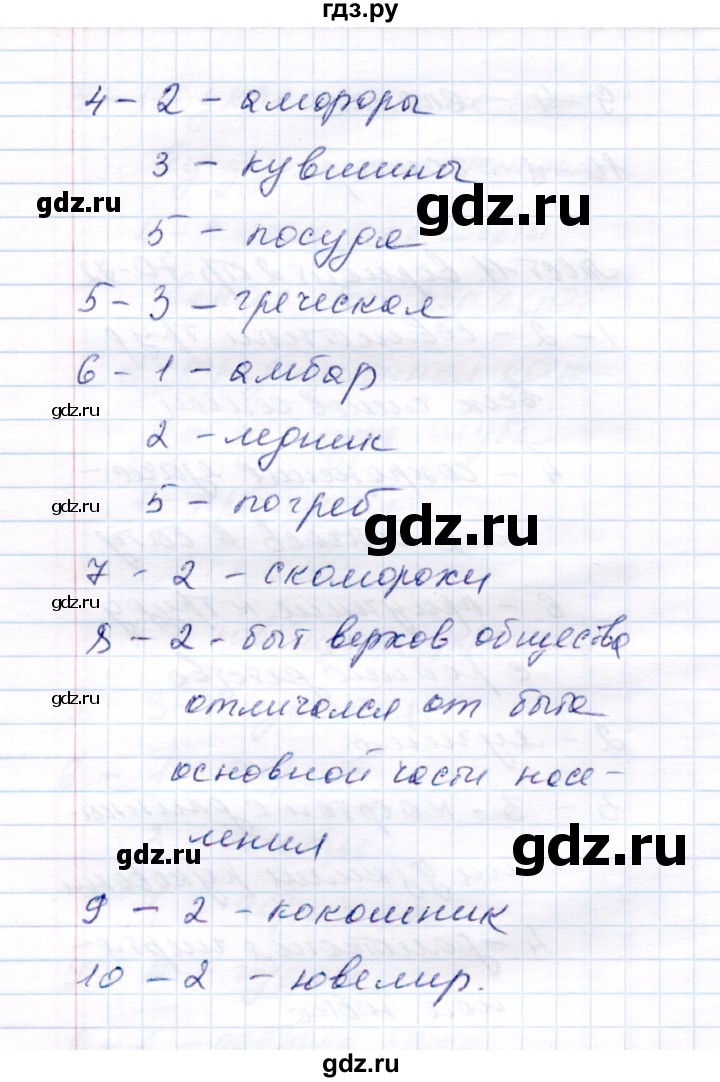 гдз.ру
4 – 2 – амфоры
3 – кувшины
gdz.ru
gdz.ru
5 – посуда
5 – 3 – греческая
6 – 1 – амбар
gdz.ru
2 – ледник
gdz.ru
5 – погреб
gdz.ru
7 – 2 – скоморохи
gdz.ru
8 – 2 – быт верхов общества
gdz.ru
отличался от быта
основной части насе-
ления
gdz.ru
gdz.ru
9 – 2 – кокошник
10 – 2 – ювелир.
gdz.ru